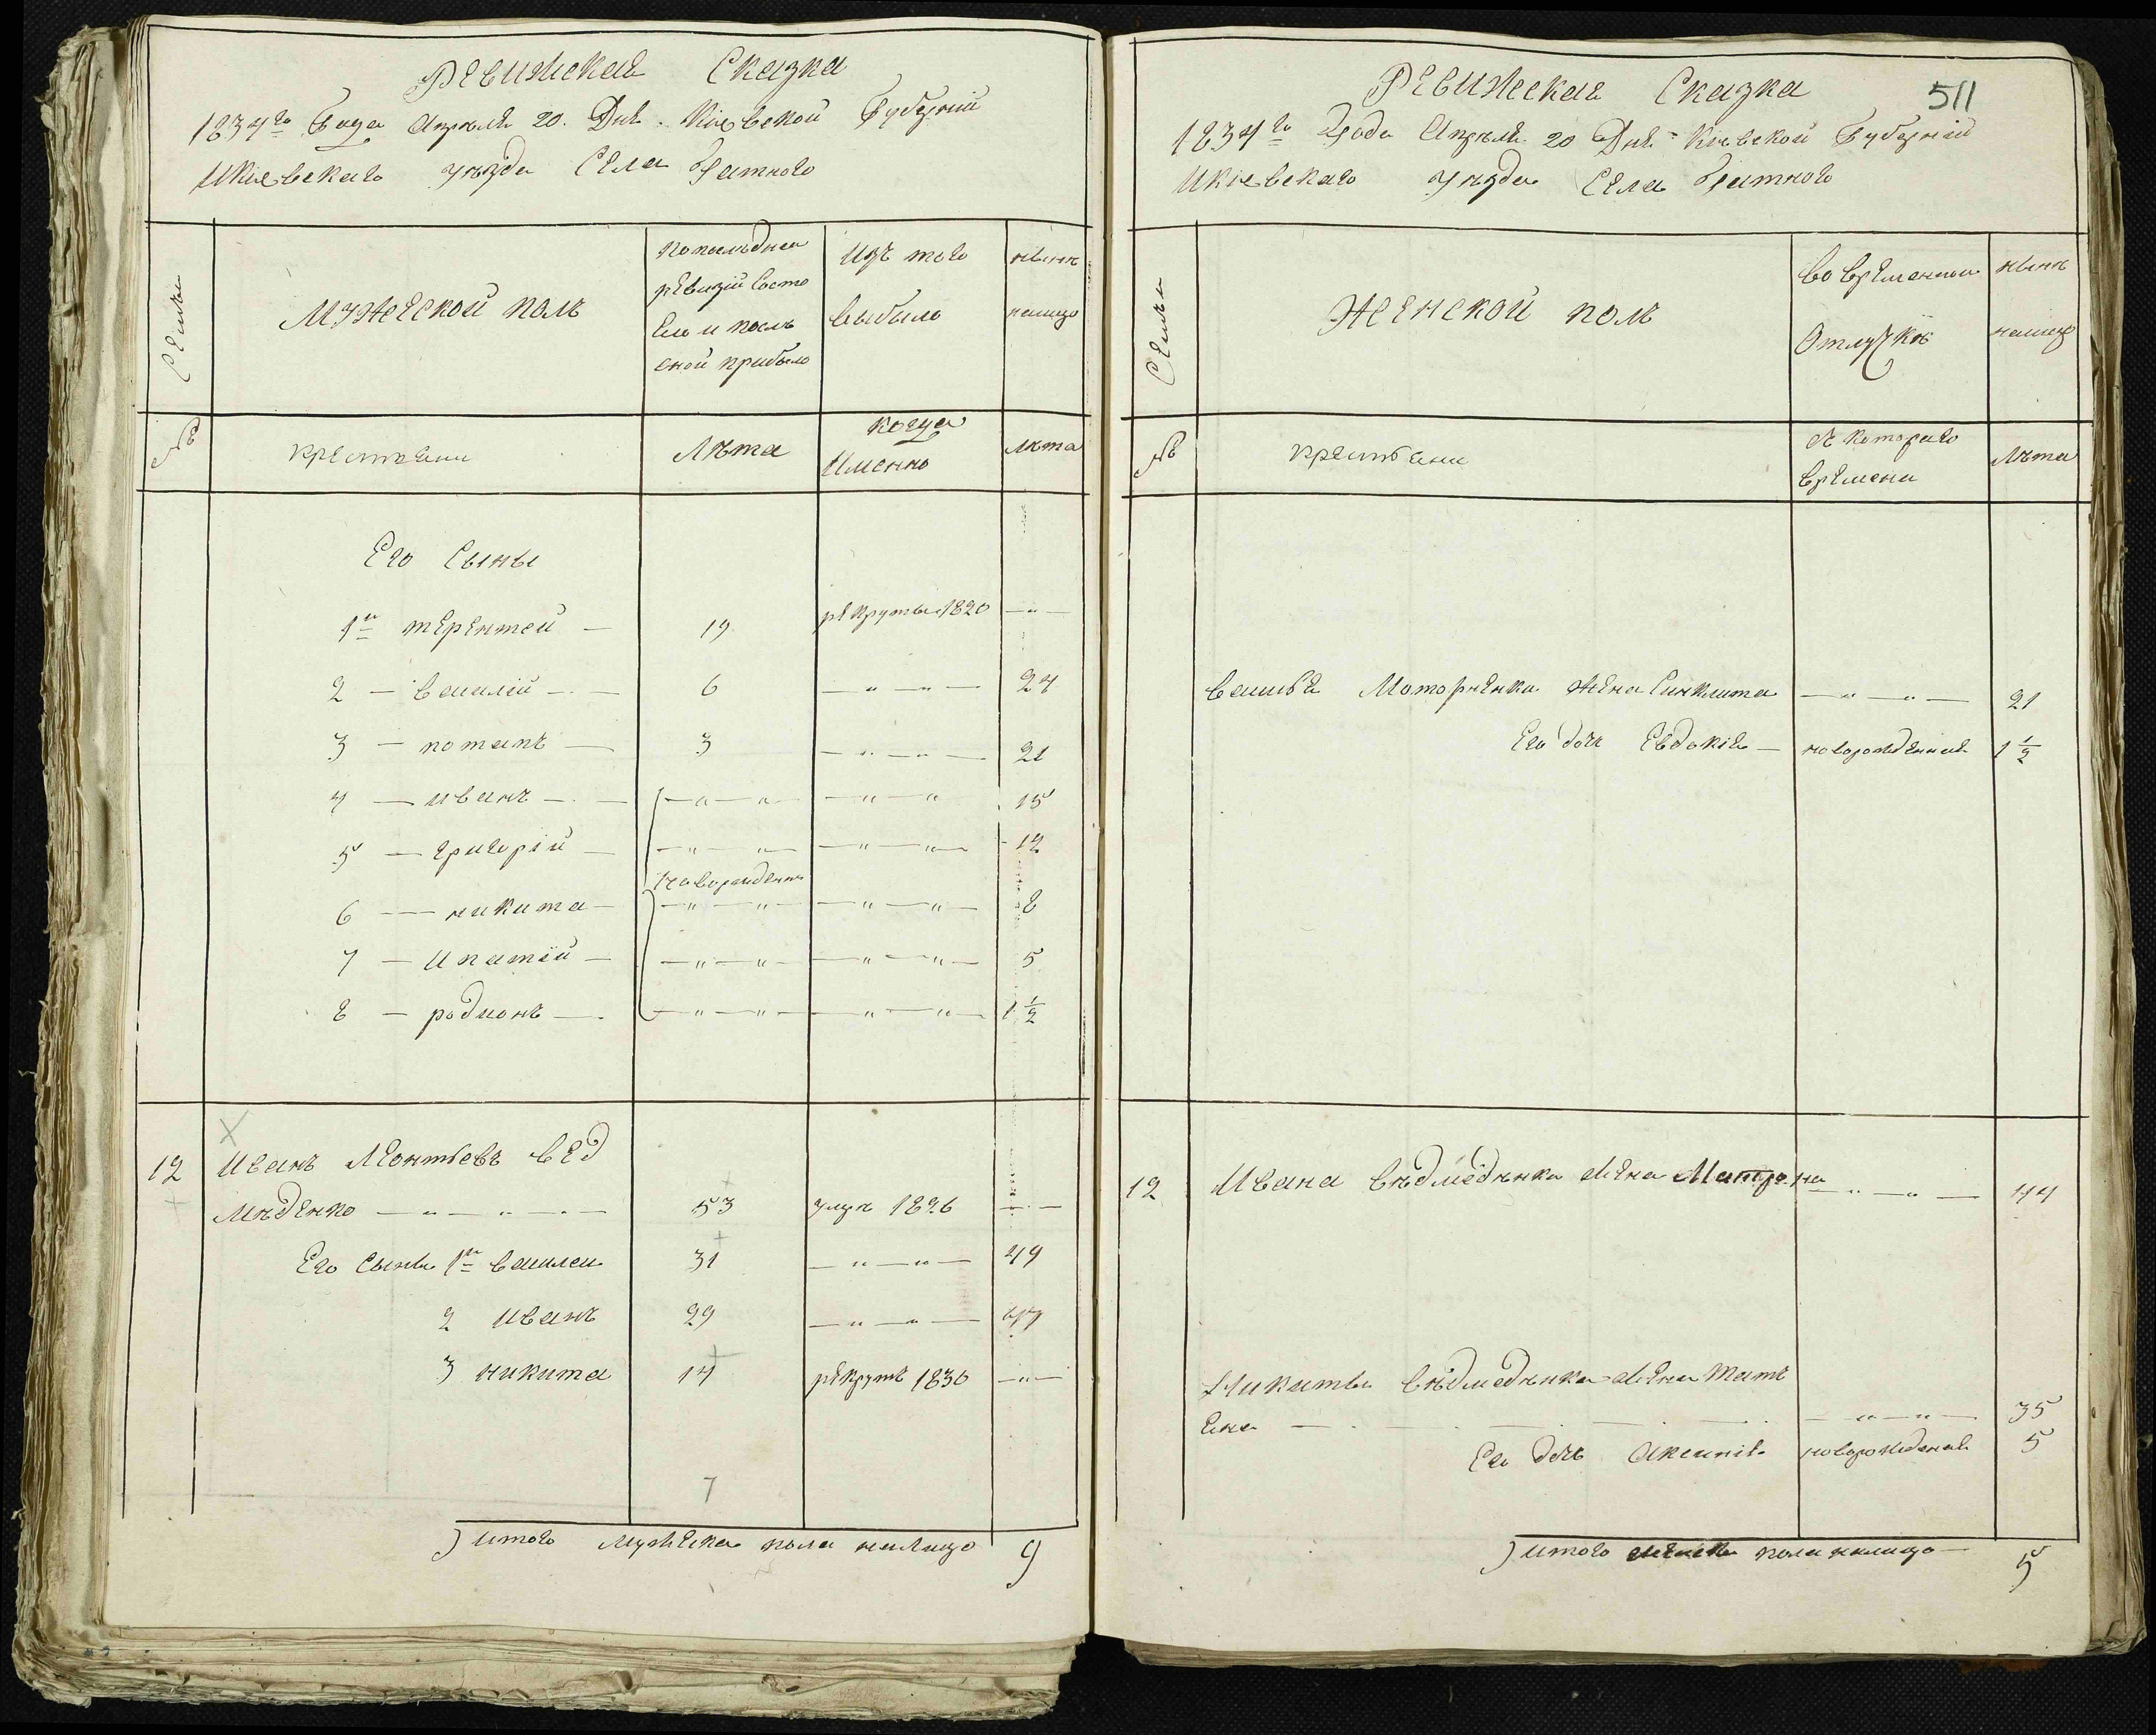 Ревижская Сказка
1834го Года Апреля 20. Дня. Кіевской Губерніи
Икіевскаго уѣзда Села Гатного
Семьи
Мужеской полъ
Попослѣдней
ревизіи Состо
Ело и послѣ
оной прибыло
Изъ того
выбыло
нынѣ
налицо
№
крестьяни
Лѣта
когда
Именно
Лѣта
Его Сыны
1й терентей — 19 рекруты 1820 — " —
2 — василій — 6 — " — " — 24
3 — потапъ — 3 — " — " — 21
4 — иванъ — — " — " — " — " 15
5 — григорій — — " — " — " — " — 12
новорожденны
6 — никита — — " — " — " — " — 8
7 — ипатій — — " — " — " — " — 5
8 — родионъ — — " — " — " — " — 1 1/2
12 Иванъ Леонтьевъ вед
мѣденко — " — " — " — 53 умре 1826 — " —
Его Сыны 1й василеи 31 — " — " — 49
2 иванъ 29 — " — " — 47
3 никита 14 рекрутъ 1830 — " —
7
итого мужеска пола налицо 9
511
Ревижская Сказка
1834го Года Апреля 20 Дня Кіевской Губерніи
Икіевскаго уѣзда Села Гатного
Семьи
Женской полъ
Во временной
Отлучкѣ
нынѣ
налицо
№
крестьяни
съ котораго
времени
Лѣта
василья Моторненка жена Синклита — " — " — 21
Его дочь Евдокія — новорожденная 1 1/2
12 Ивана вѣдмедѣнка жена Матрона — " — " — 44
Никиты вѣдмедѣнка жена Тать
Ена — — — — — " — " — 35
Его дочь Аксинія новорожденая 5
итого женска пола налицо — 5